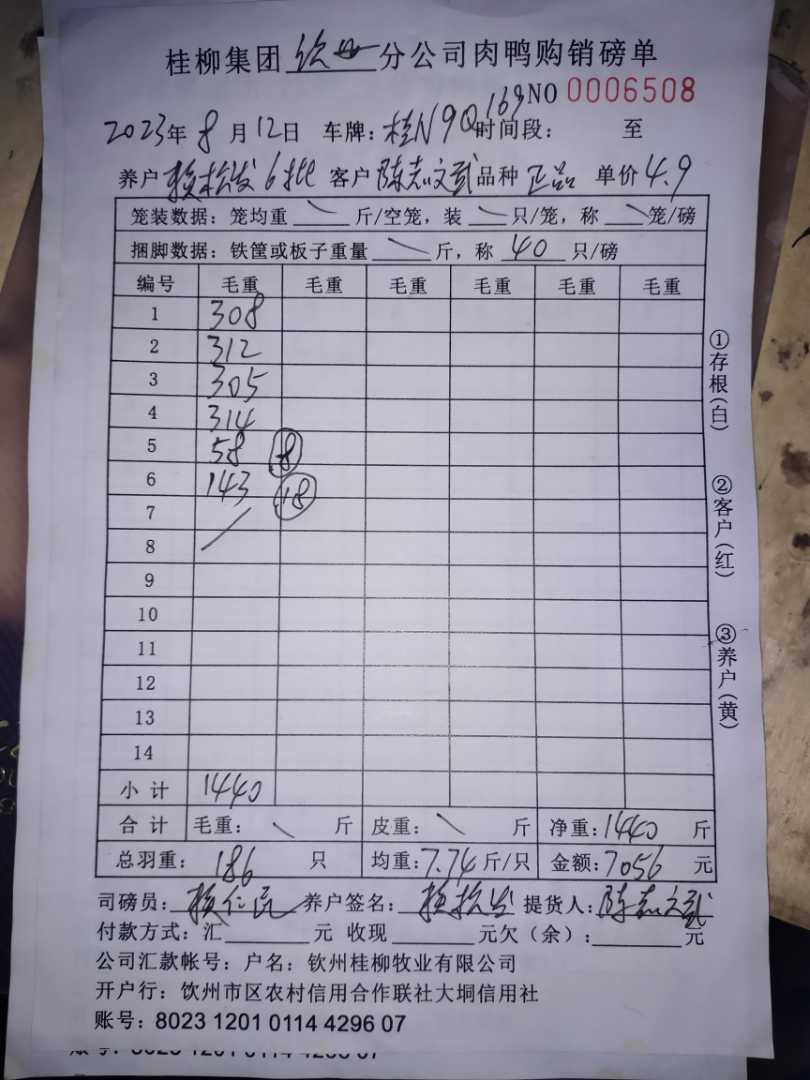 桂柳集团 钦州 分公司肉鸭购销磅单
NO 0006508
2023年 8 月 12日 车牌:桂N9Q169 时间段: 至
养户 赖松发6批 客户 陈志文武 品种 正品 单价 4.9
笼装数据:笼均重 \ 斤/空笼,装 \ 只/笼,称 \ 笼/磅
捆脚数据:铁筐或板子重量 \ 斤,称 40 只/磅
编号 毛重 毛重 毛重 毛重 毛重 毛重
1 308
2 312
3 305
4 314
5 58 8
6 143 18
7
8
9
10
11
12
13
14
小 计 1440
合 计 毛重: \ 斤 皮重: \ 斤 净重:1440 斤
总羽重: 186 只 均重:7.74 斤/只 金额:7056 元
司磅员: 养户签名: 赖松发 提货人: 陈志文武
付款方式:汇 元 收现 元欠(余): 元
公司汇款帐号:户名:钦州桂柳牧业有限公司
开户行:钦州市区农村信用合作联社大垌信用社
账号:8023 1201 0114 4296 07
①存根(白)
②客户(红)
③养户(黄)